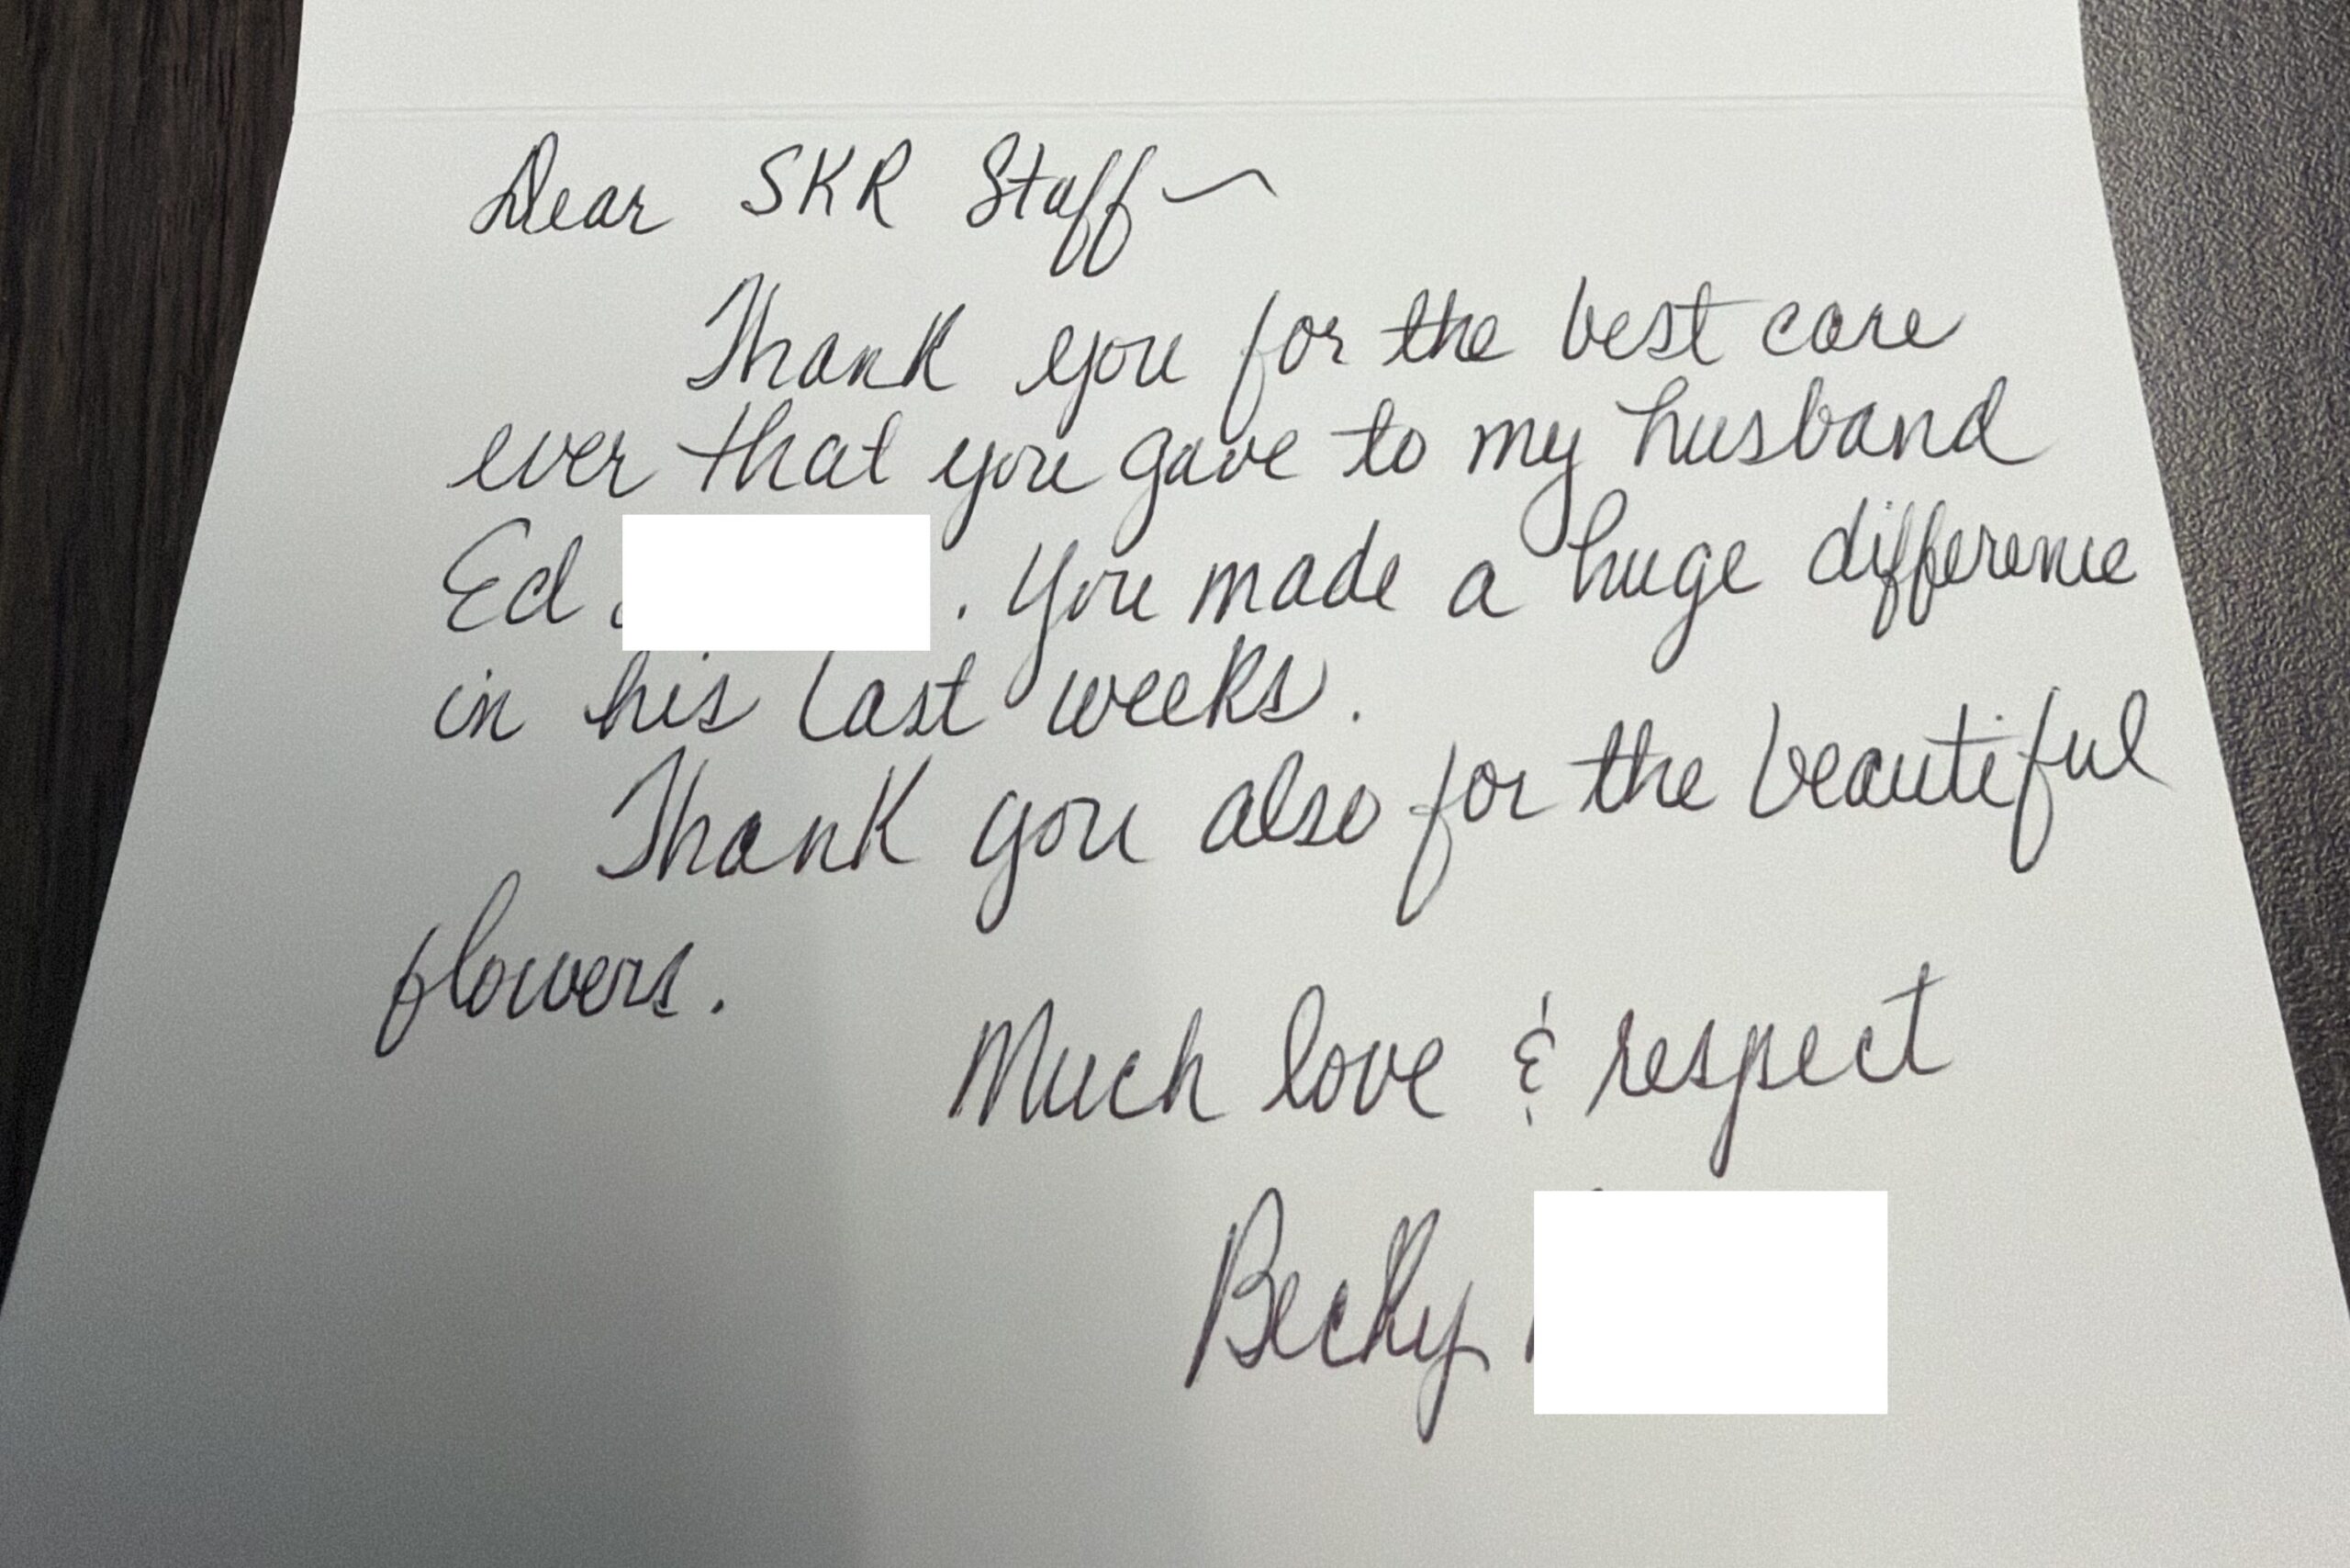 Dear SKR Staff~
Thank you for the best care
ever that you gave to my husband
Ed . You made a huge difference
in his last weeks.
Thank you also for the beautiful
flowers.
Much love & respect
Becky